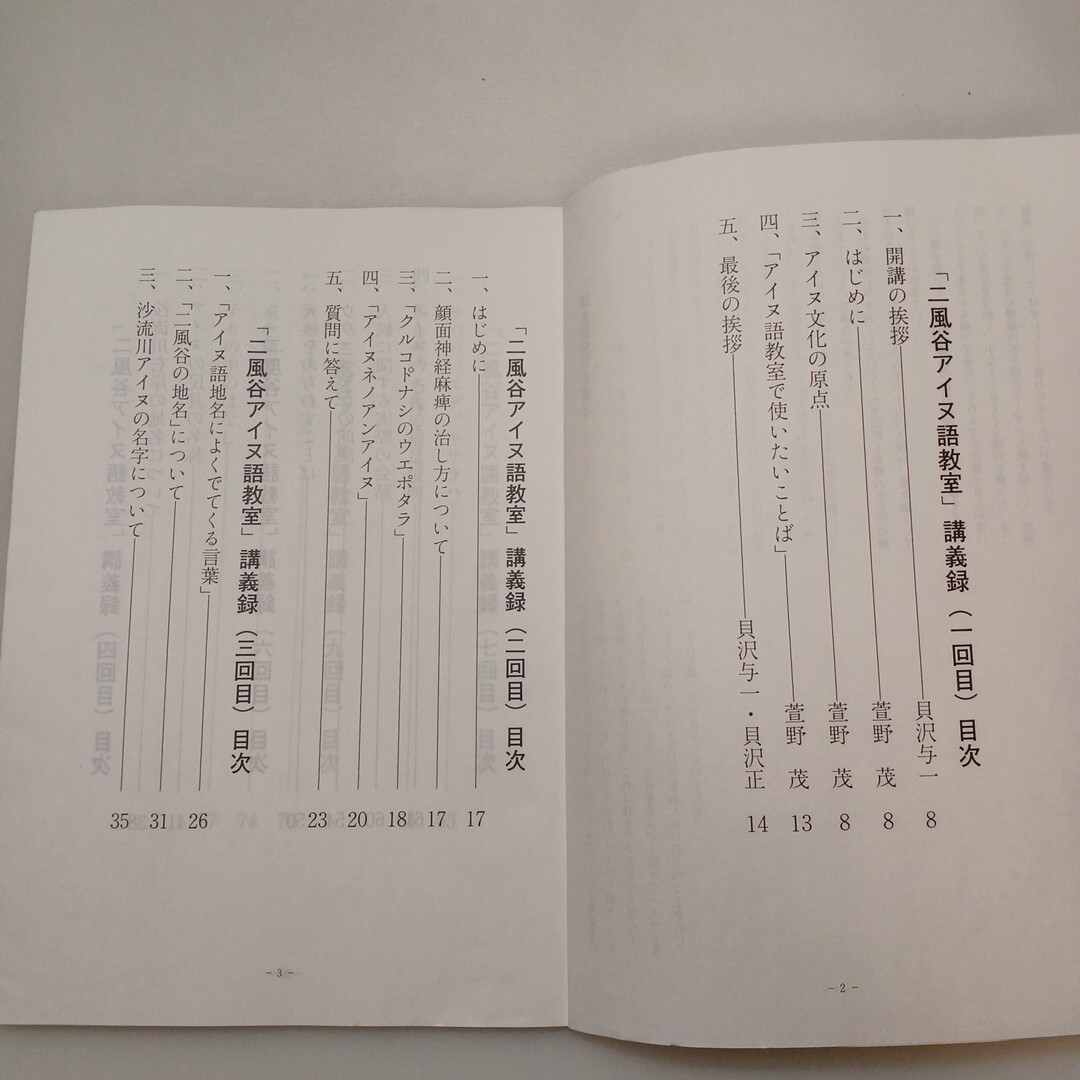 「二風谷アイヌ語教室」講義録（一回目）目次
一、開講の挨拶 貝沢与一 8
二、はじめに 萱野 茂 8
三、アイヌ文化の原点 萱野 茂 8
四、「アイヌ語教室で使いたいことば」 萱野 茂 13
五、最後の挨拶 貝沢与一・貝沢正 14
- 2 -
「二風谷アイヌ語教室」講義録（二回目）目次
一、はじめに 17
二、顔面神経麻痺の治し方について 17
三、「クルコㇳ゚ナシのウエポタラ」 18
四、「アイヌネノアンアイヌ」 20
五、質問に答えて 23
「二風谷アイヌ語教室」講義録（三回目）目次
一、「アイヌ語地名によくでてくる言葉」 26
二、「二風谷の地名」について 31
三、沙流川アイヌの名字について 35
- 3 -